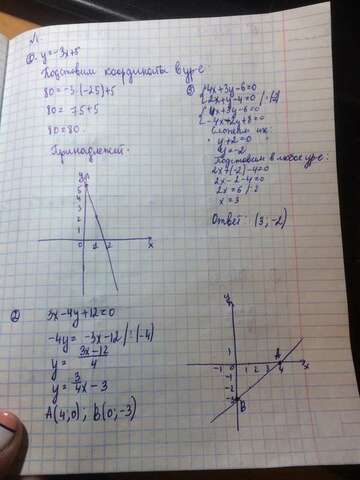 №1
①. y=-3x+5
Подставим координаты в ур-е
80=-3·(-25)+5
80= 75+5
80=80
Принадлежит.
y
5
4
3
2
1
0 1 2 x
② 3x-4y+12=0
-4y= -3x-12/:(-4)
y= 3x-12/4
y= 3/4x-3
A(4;0); B(0;-3)
③ {4x+3y-6=0
{2x+y-4=0 /·(-2)
{4x+3y-6=0
{-4x+2y+8=0
Сложим их:
y+2=0
y=-2
Подставим в любое ур-е:
2x+(-2)-4=0
2x-2-4=0
2x=6 /:2
x=3
Ответ: (3;-2)
y
1 A
-1 0 1 2 3 4 x
-1
-2
-3 B